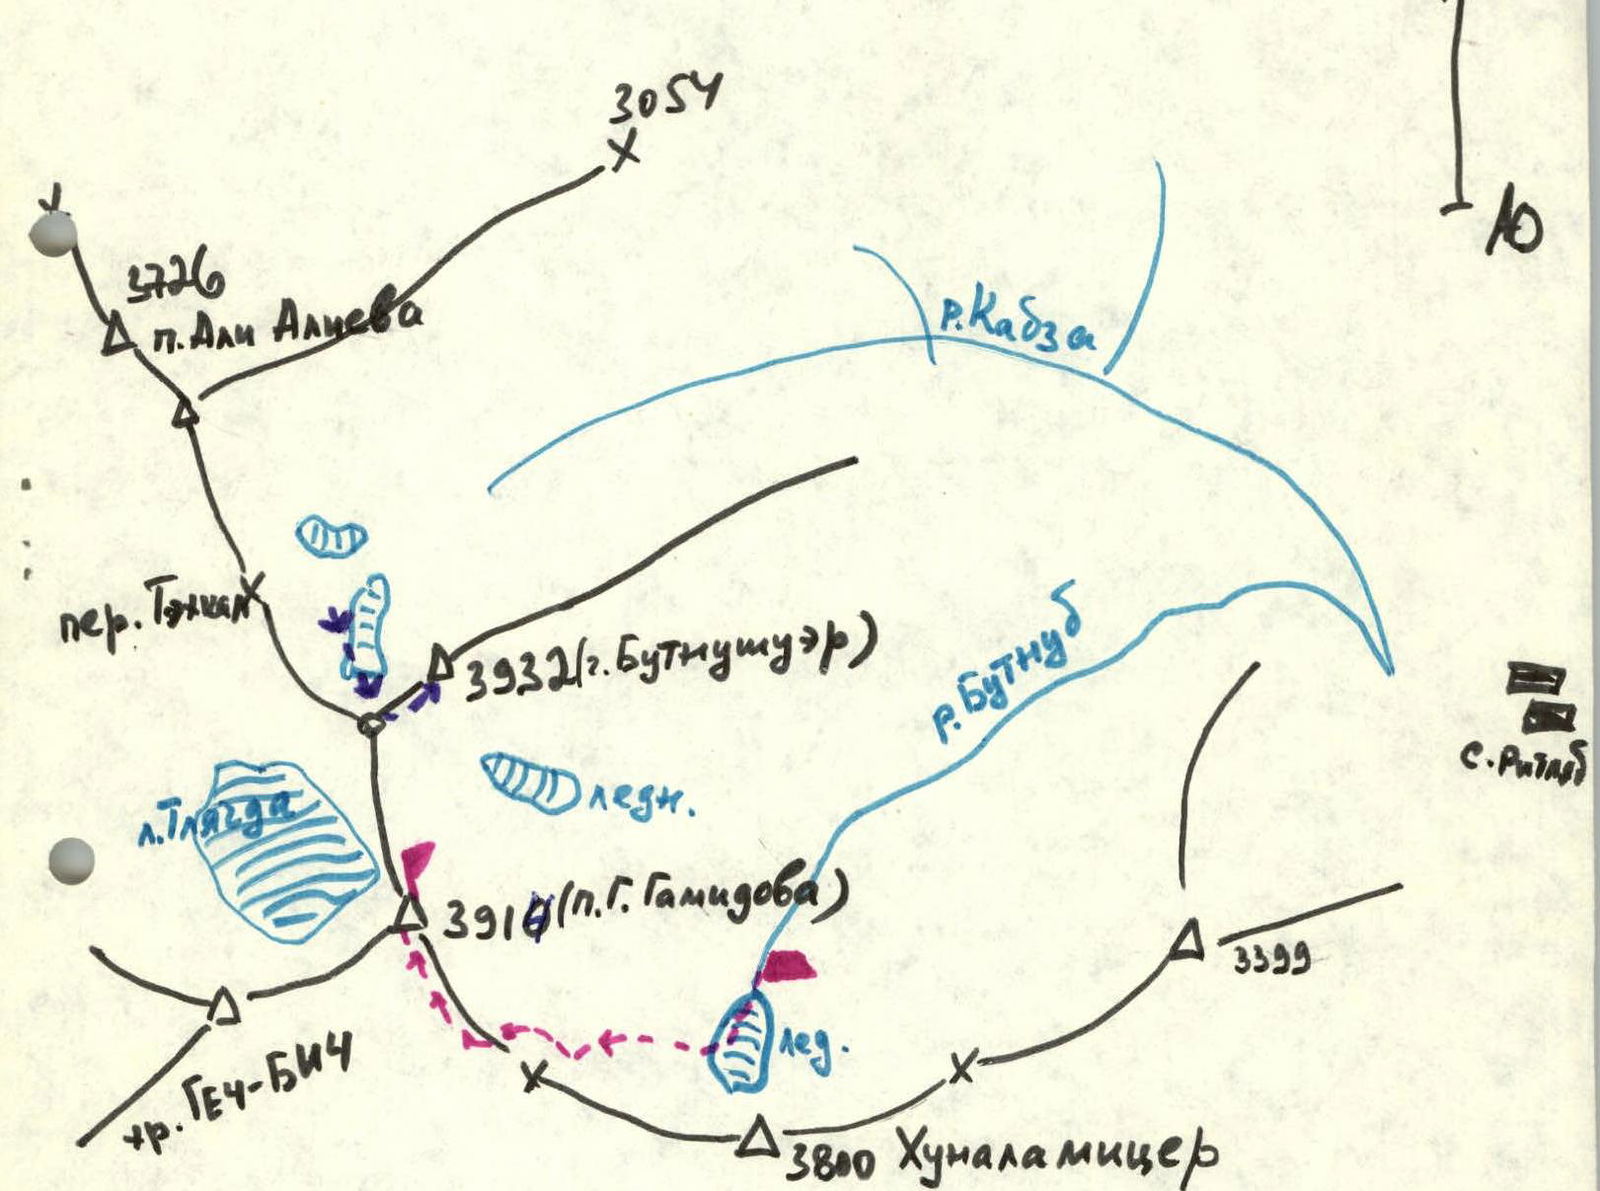 3054
Ю
3726
п. Али Алиева
р. Кабза
пер. Тэкал
3932 (г. Бутнушуэр)
р. Бутнуб
с. Ритляб
л. Тлягда
ледн.
3914 (п. Г. Гамидова)
3399
лед.
хр. ГЕЧ-БИЧ
3800 Хуналамицер